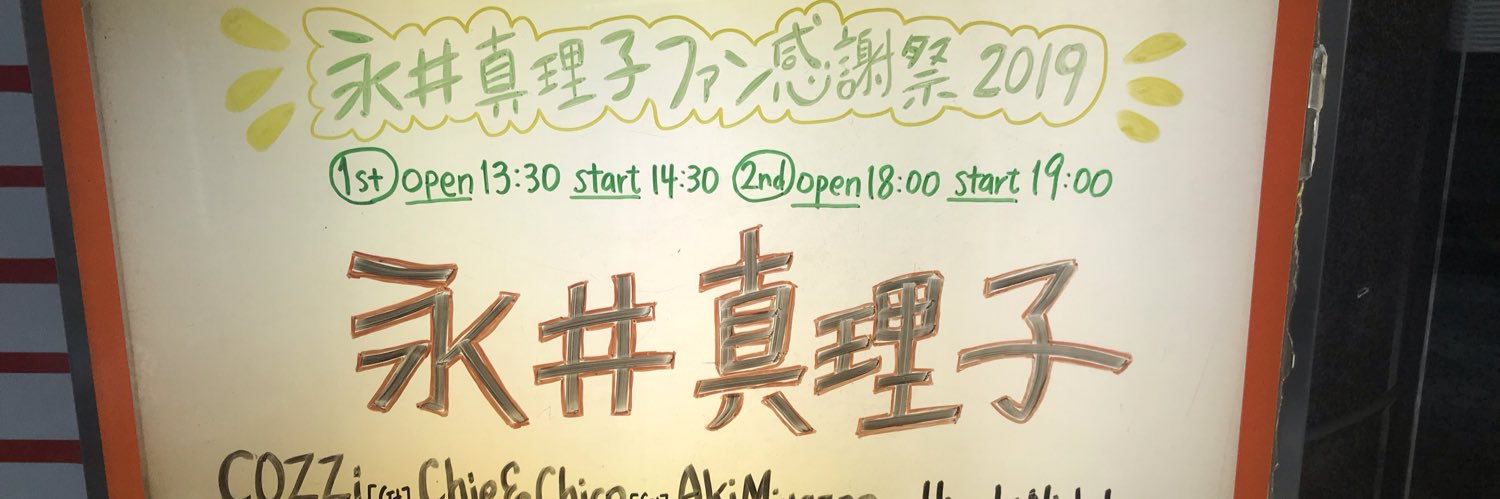 永井真理子ファン感謝祭2019
1st open 13:30 start 14:30 2nd open 18:00 start 19:00
永井真理子
COZZi